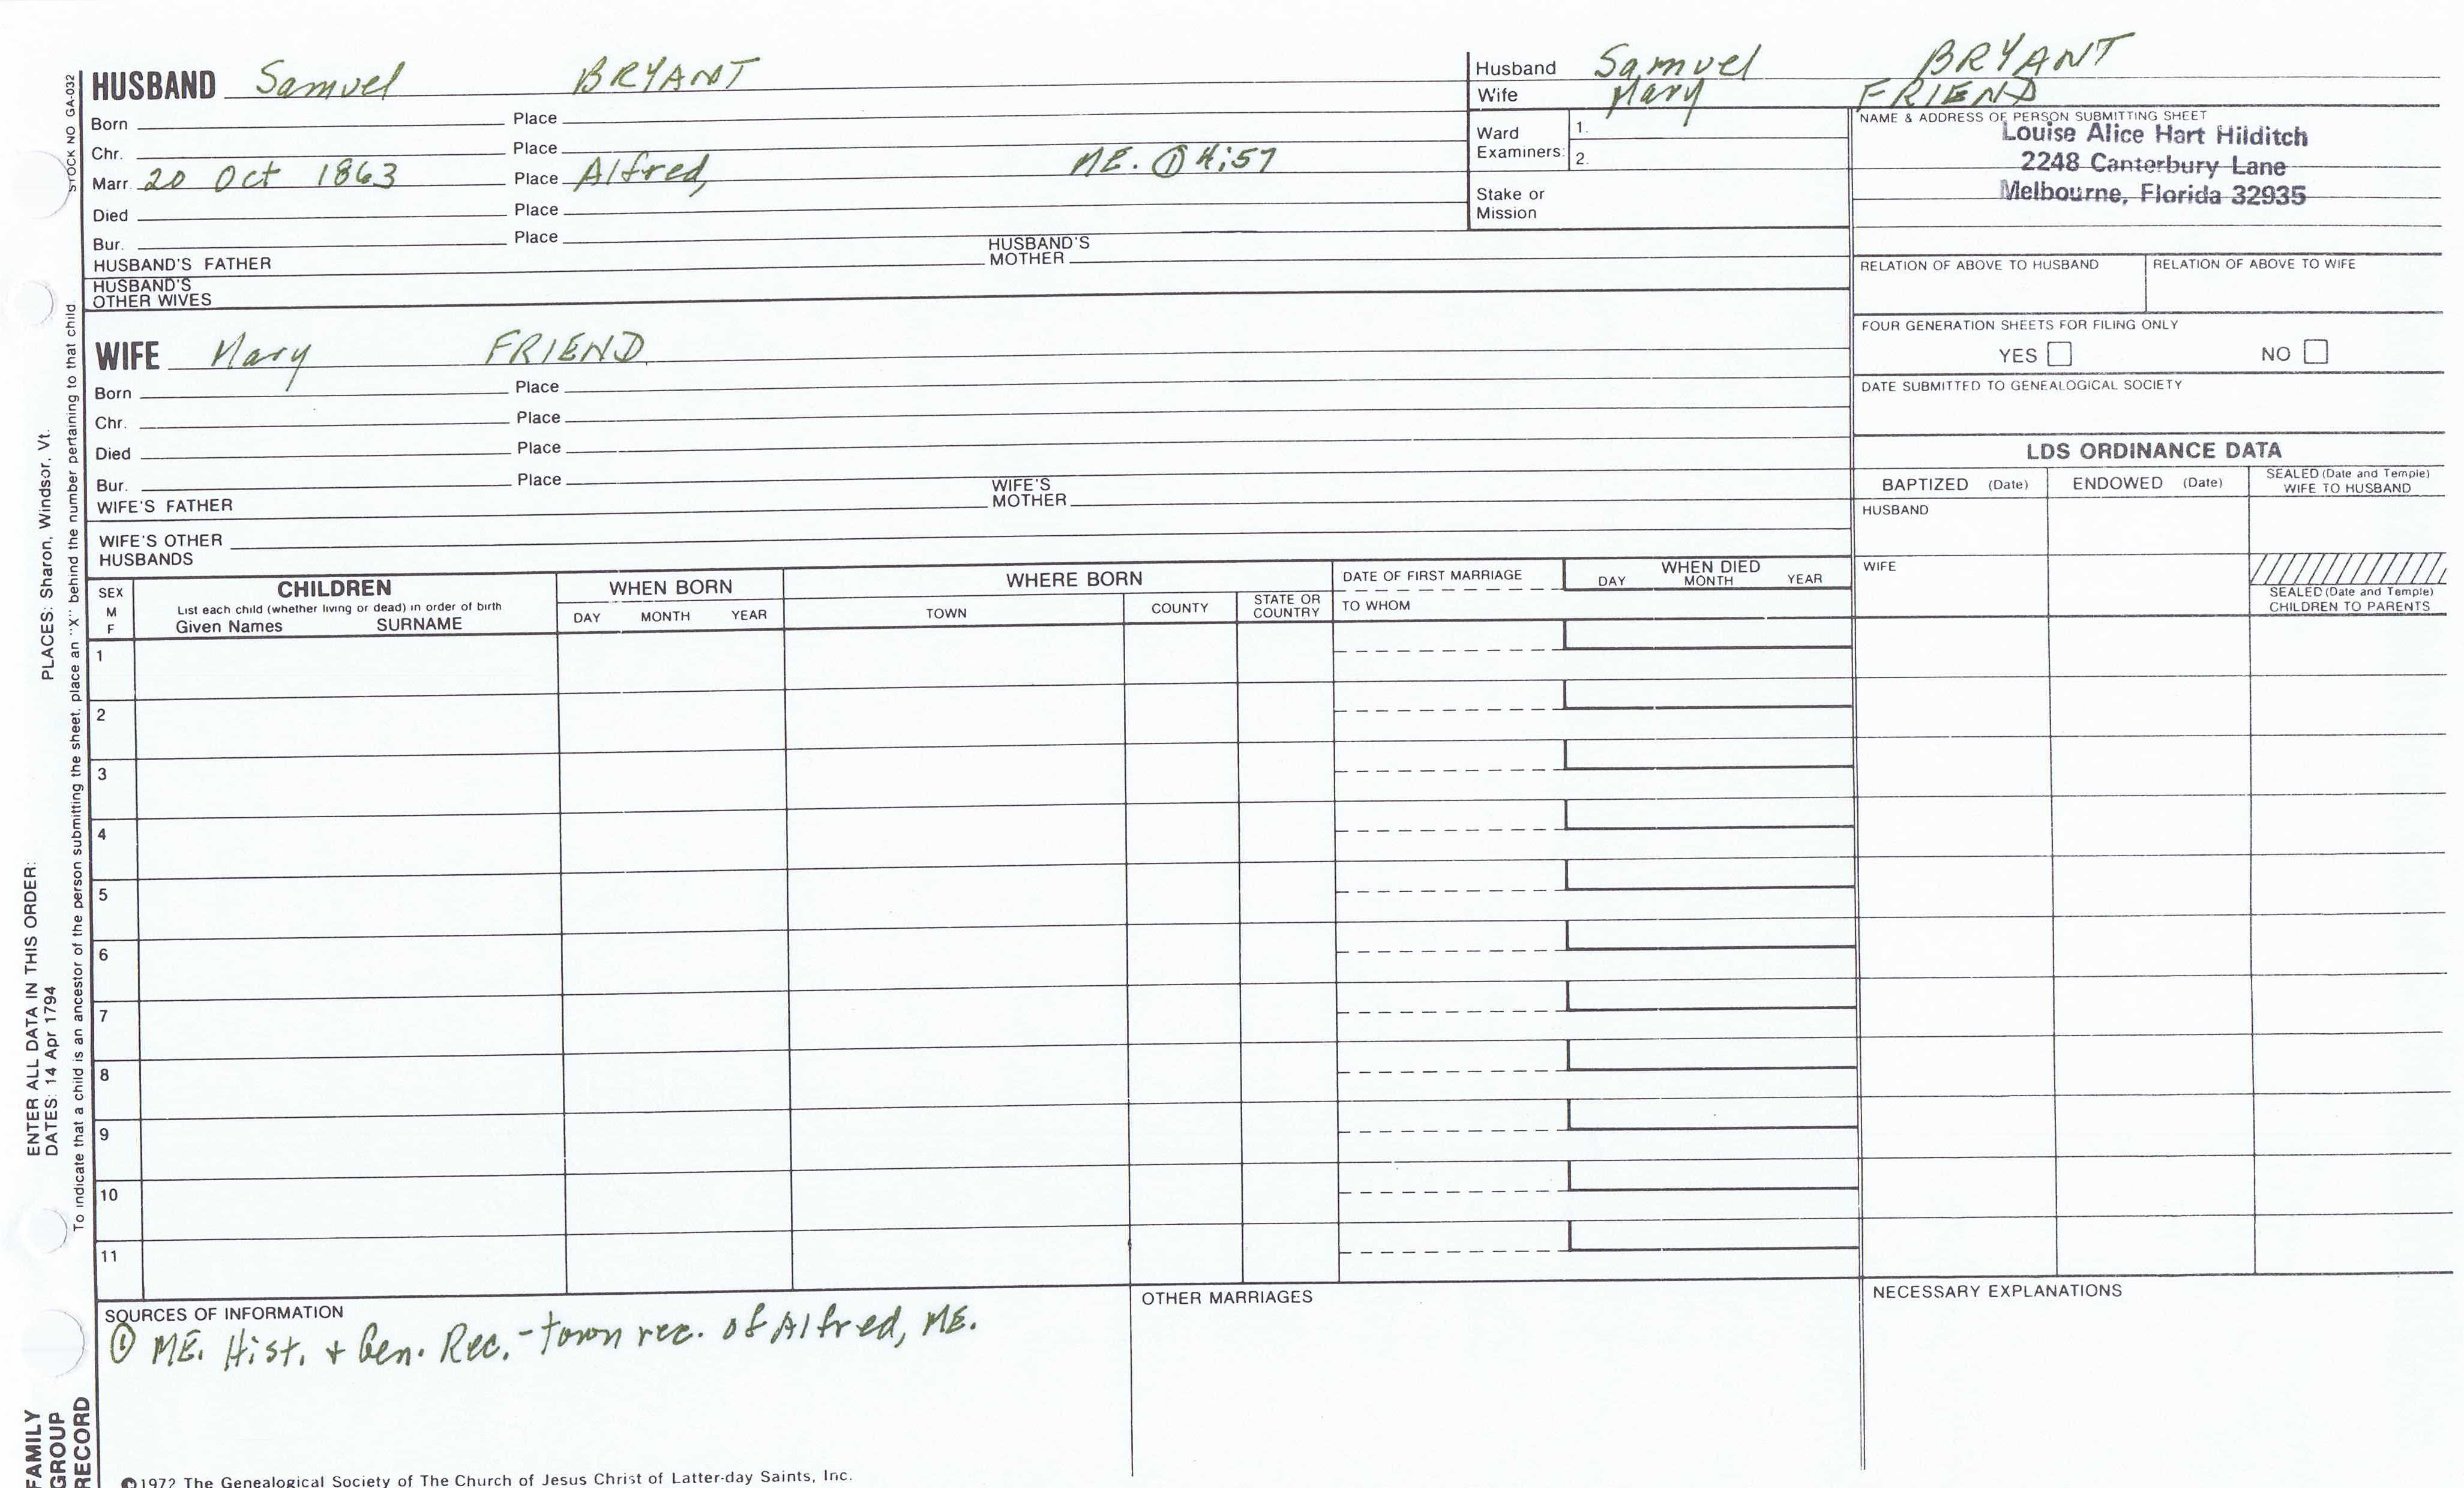 STOCK NO GA-032
HUSBAND Samuel BRYANT
Born Place
Chr. Place
Marr. 20 Oct 1863 Place Alfred, ME. ① 4:57
Died Place
Bur. Place
HUSBAND'S FATHER HUSBAND'S MOTHER
HUSBAND'S OTHER WIVES
Husband Samuel BRYANT
Wife Mary FRIEND
Ward Examiners: 1.
2.
Stake or Mission
NAME & ADDRESS OF PERSON SUBMITTING SHEET
Louise Alice Hart Hilditch
2248 Canterbury Lane
Melbourne, Florida 32935
RELATION OF ABOVE TO HUSBAND RELATION OF ABOVE TO WIFE
FOUR GENERATION SHEETS FOR FILING ONLY
YES NO
DATE SUBMITTED TO GENEALOGICAL SOCIETY
WIFE Mary FRIEND
Born Place
Chr. Place
Died Place
Bur. Place
WIFE'S FATHER WIFE'S MOTHER
WIFE'S OTHER HUSBANDS
LDS ORDINANCE DATA
BAPTIZED (Date) ENDOWED (Date) SEALED (Date and Temple) WIFE TO HUSBAND
HUSBAND
WIFE
SEALED (Date and Temple) CHILDREN TO PARENTS
SEX M F
CHILDREN
List each child (whether living or dead) in order of birth
Given Names SURNAME
WHEN BORN
DAY MONTH YEAR
WHERE BORN
TOWN COUNTY STATE OR COUNTRY
DATE OF FIRST MARRIAGE
TO WHOM
WHEN DIED
DAY MONTH YEAR
1
2
3
4
5
6
7
8
9
10
11
SOURCES OF INFORMATION
① ME. Hist. + Gen. Rec. - town rec. of Alfred, ME.
OTHER MARRIAGES
NECESSARY EXPLANATIONS
©1972 The Genealogical Society of The Church of Jesus Christ of Latter-day Saints, Inc.
ENTER ALL DATA IN THIS ORDER:
DATES: 14 Apr 1794 PLACES: Sharon, Windsor, Vt.
To indicate that a child is an ancestor of the person submitting the sheet, place an "X" behind the number pertaining to that child
FAMILY
GROUP
RECORD